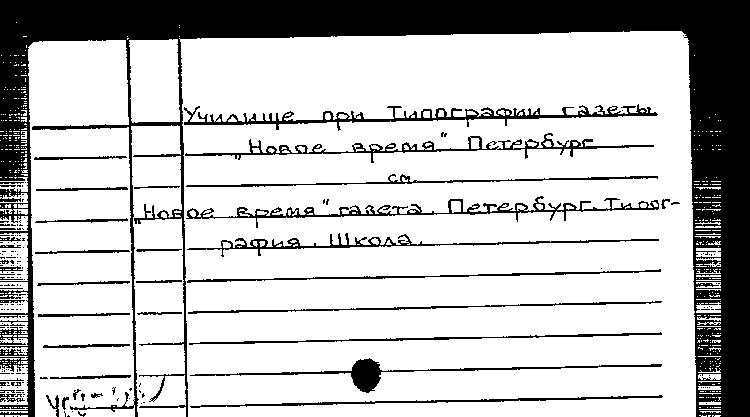 Училище при Типографии газеты
„Новое время" Петербург
см.
„Новое время" газета. Петербург. Типог-
рафия. Школа.